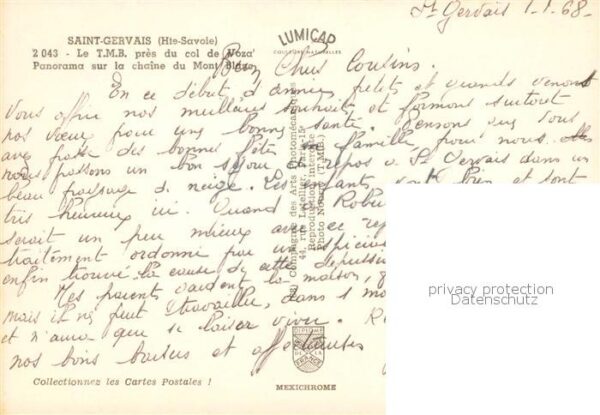 St Gervais 1.1.68.
SAINT-GERVAIS (Hte-Savoie)
2 043 - Le T.M.B. près du col de Voza
Panorama sur la chaîne du Mont Blanc
LUMICAP
COULEURS NATURELLES
Bien Chers Cousins.
En ce début d'année, petits et grands venons
vous offrir nos meilleurs souhaits et formons surtout
nos vœux pour une bonne santé. Pensons que vous
avez passé des bonnes fêtes en famille, pour nous
nous passons un bon séjour de repos à St Gervais dans un
beau paysage de neige. Les enfants vont bien et sont
très heureux ici. Quand à Robe
serait un peu mieux avec ce re
traitement ordonné par un spécia
enfin trouvé la cause de cette dépress
Mes parents gardent la maison,
mais il ne peut travailler, dans 1 mo
et n'aura que se laisser vivre.
nos bons baisers et affectueuses
Compagnie des Arts Photomécaniques
44, rue Letellier, Paris-15e
Reproduction interdite
privacy protection
Datenschutz
Collectionnez les Cartes Postales !
FRANCE
MEXICHROME